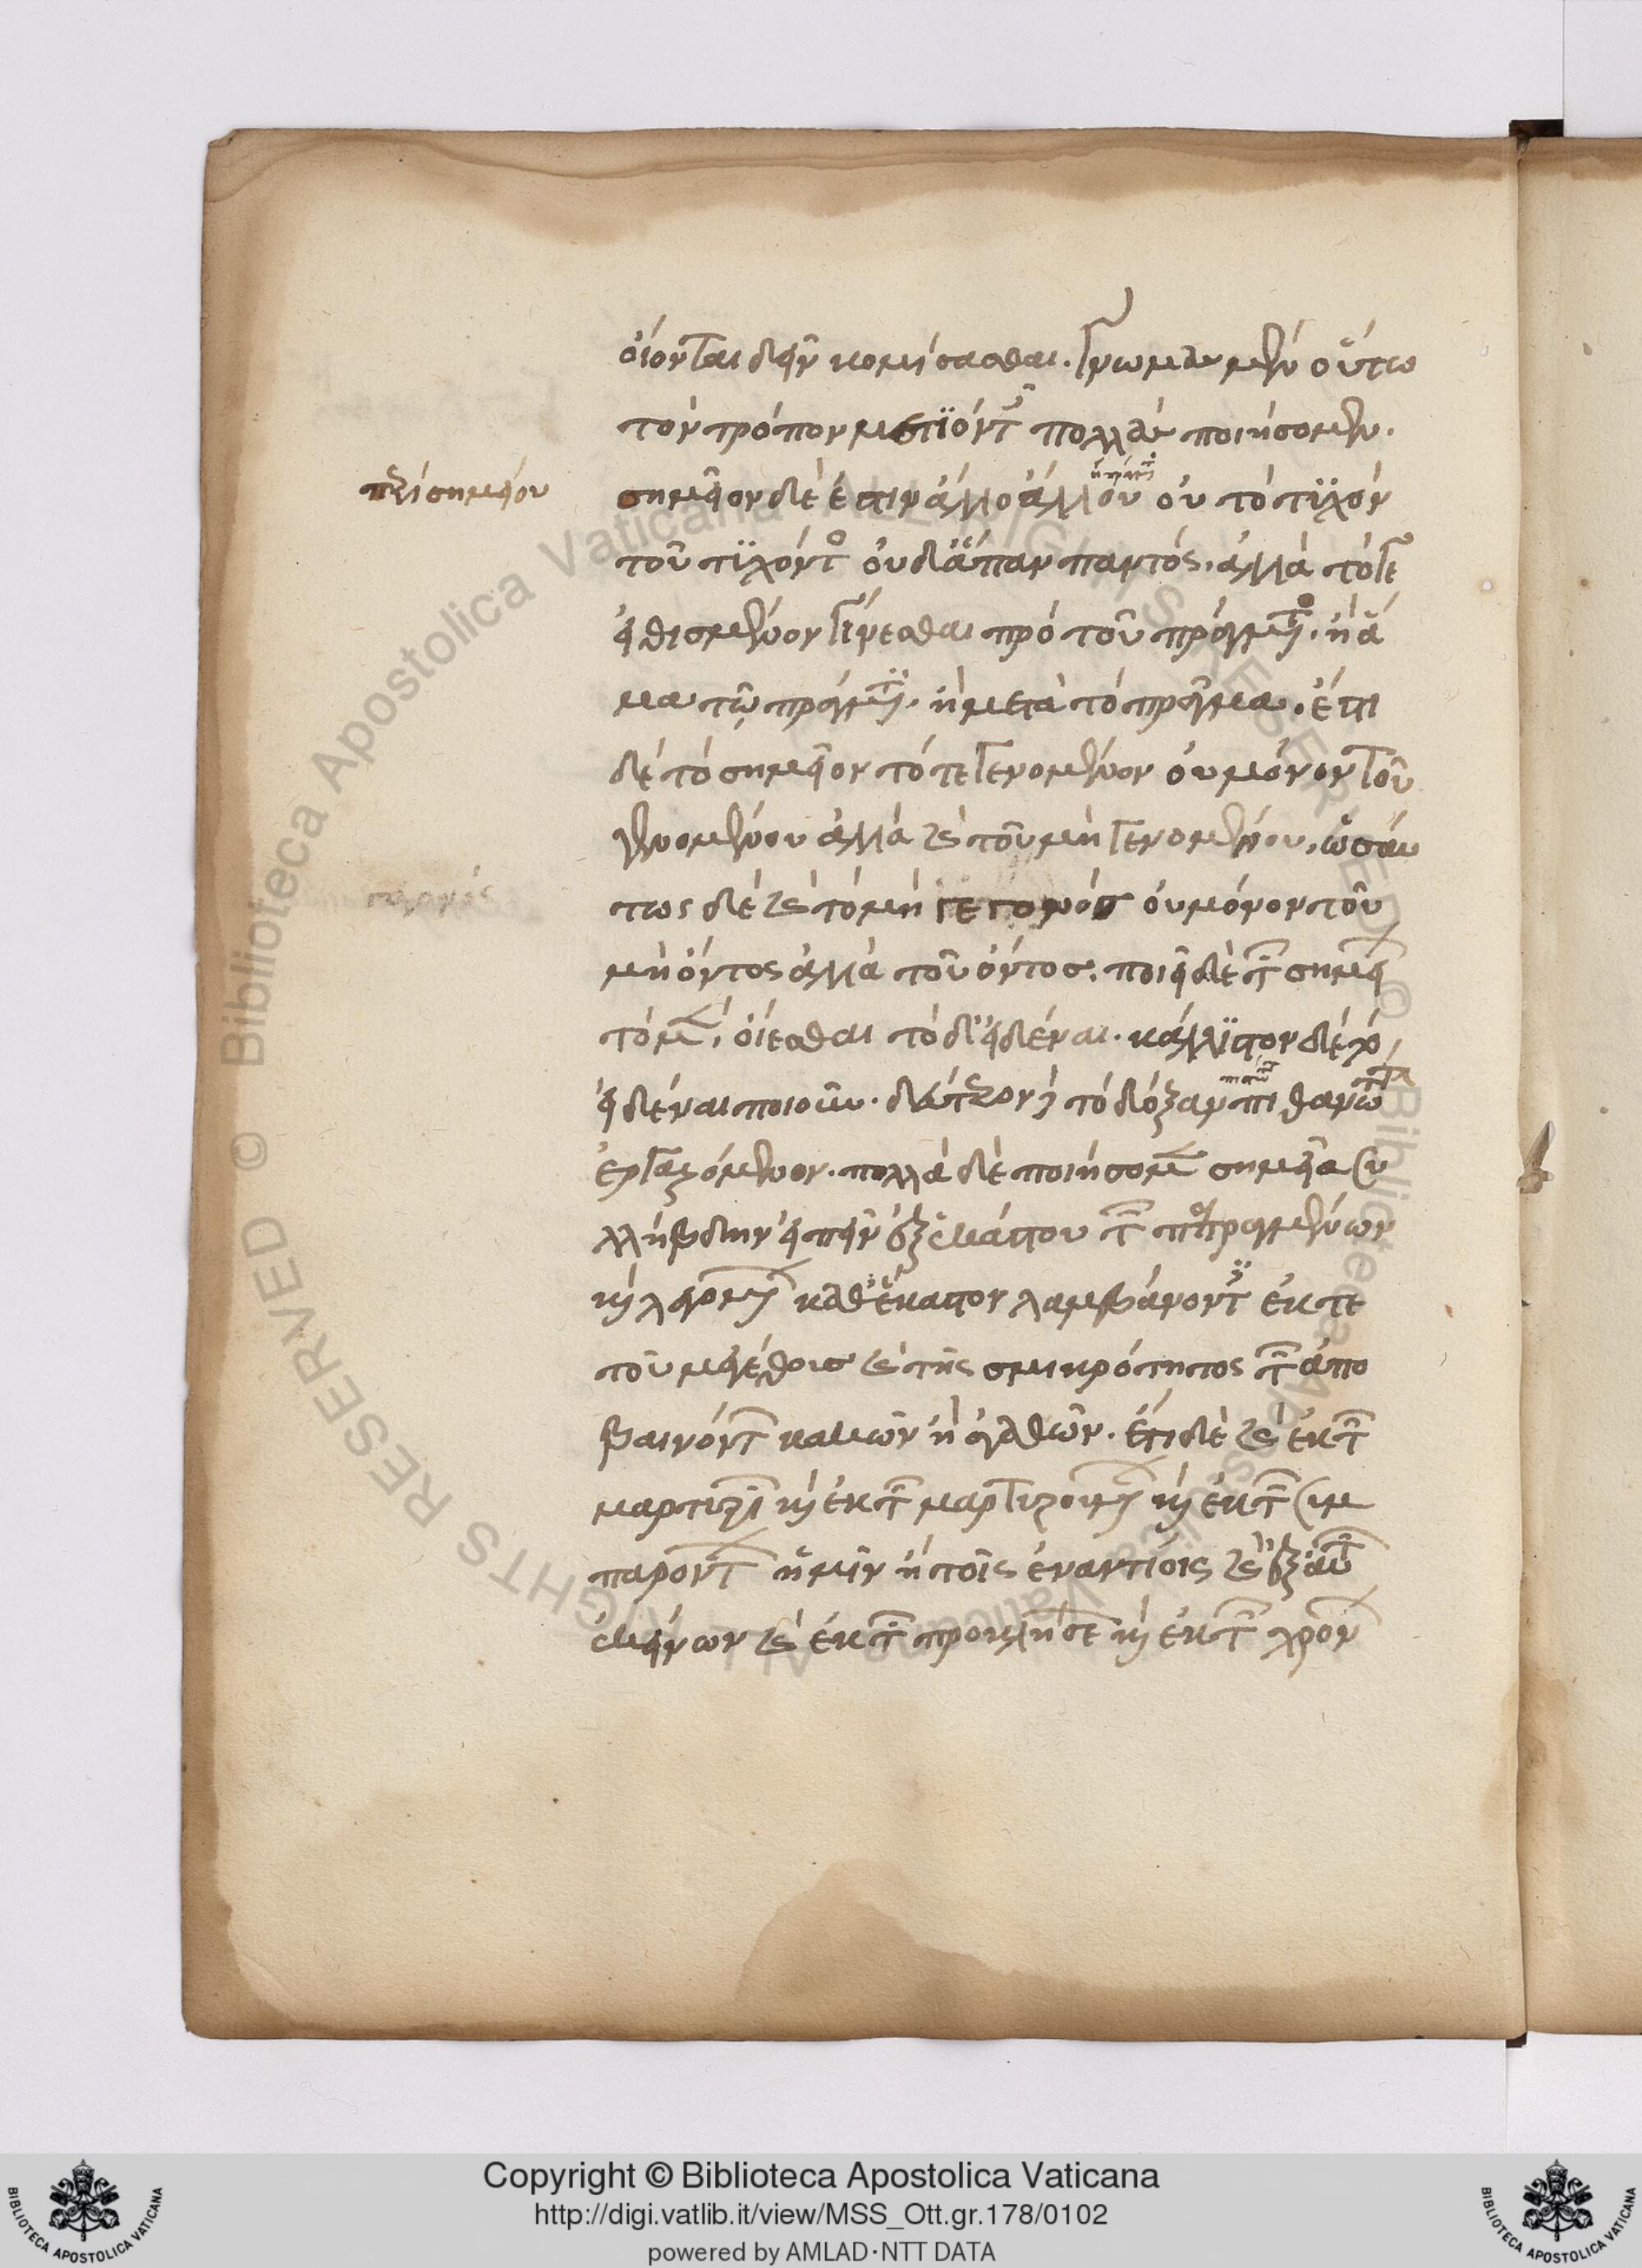 οἴονται δεῖν κομίσασθαι. γνώμας μὲν οὕτω
τὸν τρόπον μετιόντες πολλὰς ποιήσομεν.
περὶ σημείου
σημεῖον δέ ἐστιν ἄλλο ἄλλου οὐ τὸ τυχὸν
τοῦ τυχόντος οὐδ' ἅπαν παντός. ἀλλὰ τό τε
εἰθισμένον γίνεσθαι πρὸ τοῦ πράγματος. ἢ ἅ
μα τῷ πράγματι. ἢ μετὰ τὸ πρᾶγμα. ἔστι
δὲ τὸ σημεῖον τό τε γενόμενον οὐ μόνον τοῦ
γενομένου ἀλλὰ καὶ τοῦ μὴ γενομένου. ὡσαύ
τως δὲ καὶ τὸ μὴ γεγονὸς οὐ μόνον τοῦ
μὴ ὄντος ἀλλὰ τοῦ ὄντος. ποιεῖ δὲ τῶν σημείων
τὸ μὲν, οἴεσθαι τὸ δ' εἰδέναι. κάλλιστον δὲ τὸ
εἰδέναι ποιοῦν. δεύτερον δὲ τὸ δόξαν πιθανωτάτην
ἐργαζόμενον. πολλὰ δὲ ποιήσομεν σημεῖα συ
λλήβδην εἰπεῖν ἐξ ἑκάστου τῶν πεπραγμένων
καὶ λεγομένων καθ' ἕκαστον λαμβάνοντες ἔκ τε
τοῦ μεγέθους καὶ τῆς σμικρότητος τῶν ἀπο
βαινόντων κακῶν ἢ ἀγαθῶν. ἔτι δὲ καὶ ἐκ τῶν
μαρτύρων καὶ ἐκ τῶν μαρτυρουμένων καὶ ἐκ τῶν συμ
παρόντων ἡμῖν ἢ τοῖς ἐναντίοις καὶ ἐξ αὐτῶν
ἐκείνων καὶ ἐκ τῶν προκλήσεων καὶ ἐκ τῶν χρόνων
Copyright © Biblioteca Apostolica Vaticana
http://digi.vatlib.it/view/MSS_Ott.gr.178/0102
powered by AMLAD·NTT DATA
BIBLIOTECA APOSTOLICA VATICANA
BIBLIOTECA APOSTOLICA VATICANA
© Biblioteca Apostolica Vaticana ALL RIGHTS RESERVED © Biblioteca Apostolica Vaticana ALL RIGHTS RESERVED